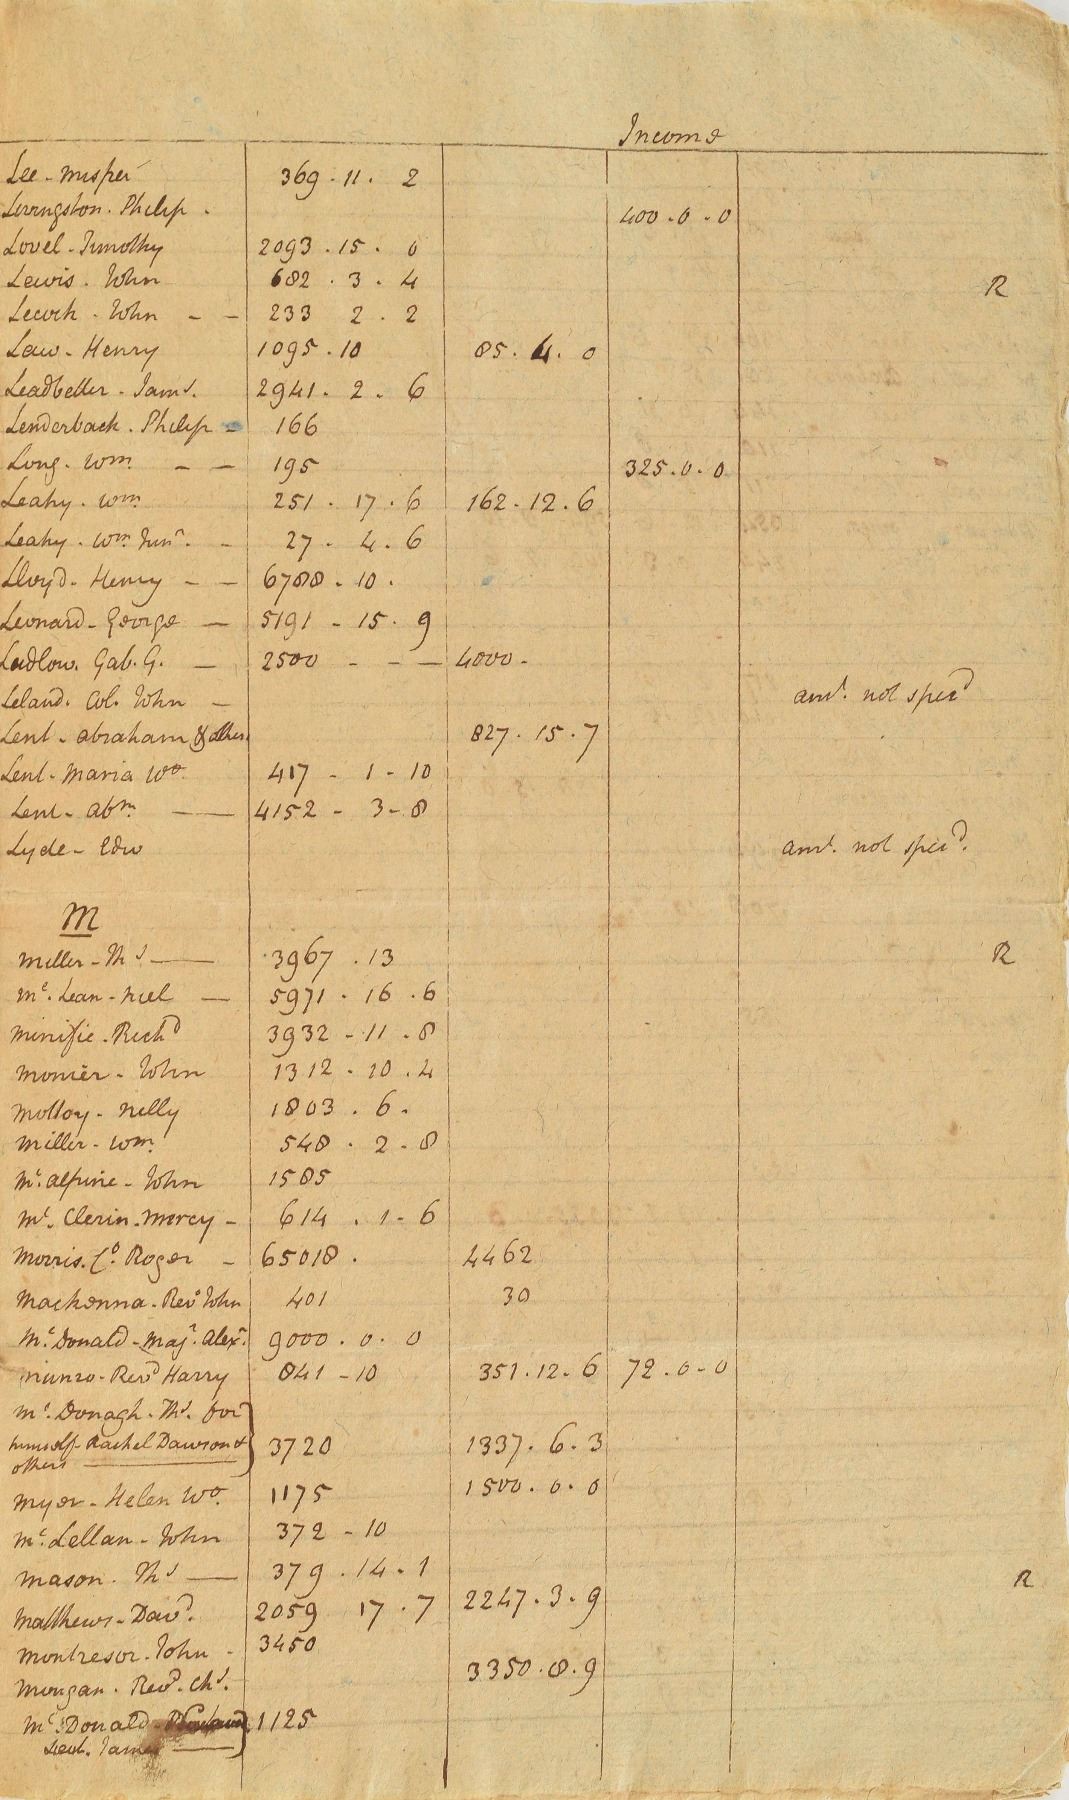 Income
Lee - 369 . 11 . 2
Livingston . Philip . 400 . 0 . 0
Lovel - Timothy 2093 . 15 . 0
Lewis . John 682 . 3 . 4 R
John - - 233 2 . 2
Law - Henry 1095 . 10 85 . 4 . 0
Leadbetter - Jams. 2941 . 2 . 6
Lenderback . Philip - 166
Long . Wm. - - 195 325 . 0 . 0
Leahy . Wm 251 . 17 . 6 162 . 12 . 6
Leahy . Wm. Junr. - 27 . 4 . 6
Lloyd - Henry - - 6788 . 10 .
Leonard - George - 5191 - 15 . 9
Ludlow . Gab. G. - 2500 - - - 4000 -
Leland . Col. John - amt. not specd
Lent - Abraham & others 827 . 15 . 7
Lent - Maria Wo. 417 - 1 - 10
Lent - Abm. - 4152 - 3 - 8
Lyde - Edw amt. not specd.
M
Miller - Ths - 3967 . 13 R
Mc. Lean - Niel - 5971 . 16 . 6
Minifie . Richd 3932 - 11 . 8
Monier - John 1312 . 10 . 4
Molloy - Nelly 1803 . 6 .
Miller - Wm. 548 . 2 - 8
Mc. Alpine - John 1585
Mc. Clerin . Mercy - 614 . 1 - 6
Morris . Co. Roger - 65018 . 4462
Mackenna - Revd John 401 30
Mc. Donald - Majr. Alexr. 9000 . 0 . 0
Munro - Revd Harry 841 - 10 351 . 12 . 6 72 . 0 - 0
Mc. Donagh . Ths. for
himself - Rachel Dawson & 3720 1337 . 6 . 3
others
Myer - Helen Wo. 1175 1500 . 0 . 0
Mc. Lellan - John 372 - 10
Mason . Ths - 379 . 14 . 1 R
Matthews - Davd. 2059 17 . 7 2247 . 3 . 9
Montresor . John - 3450
Morgan . Revd. Chs. 3350 . 8 . 9
Mc. Donald - 1125
Lieut. James -